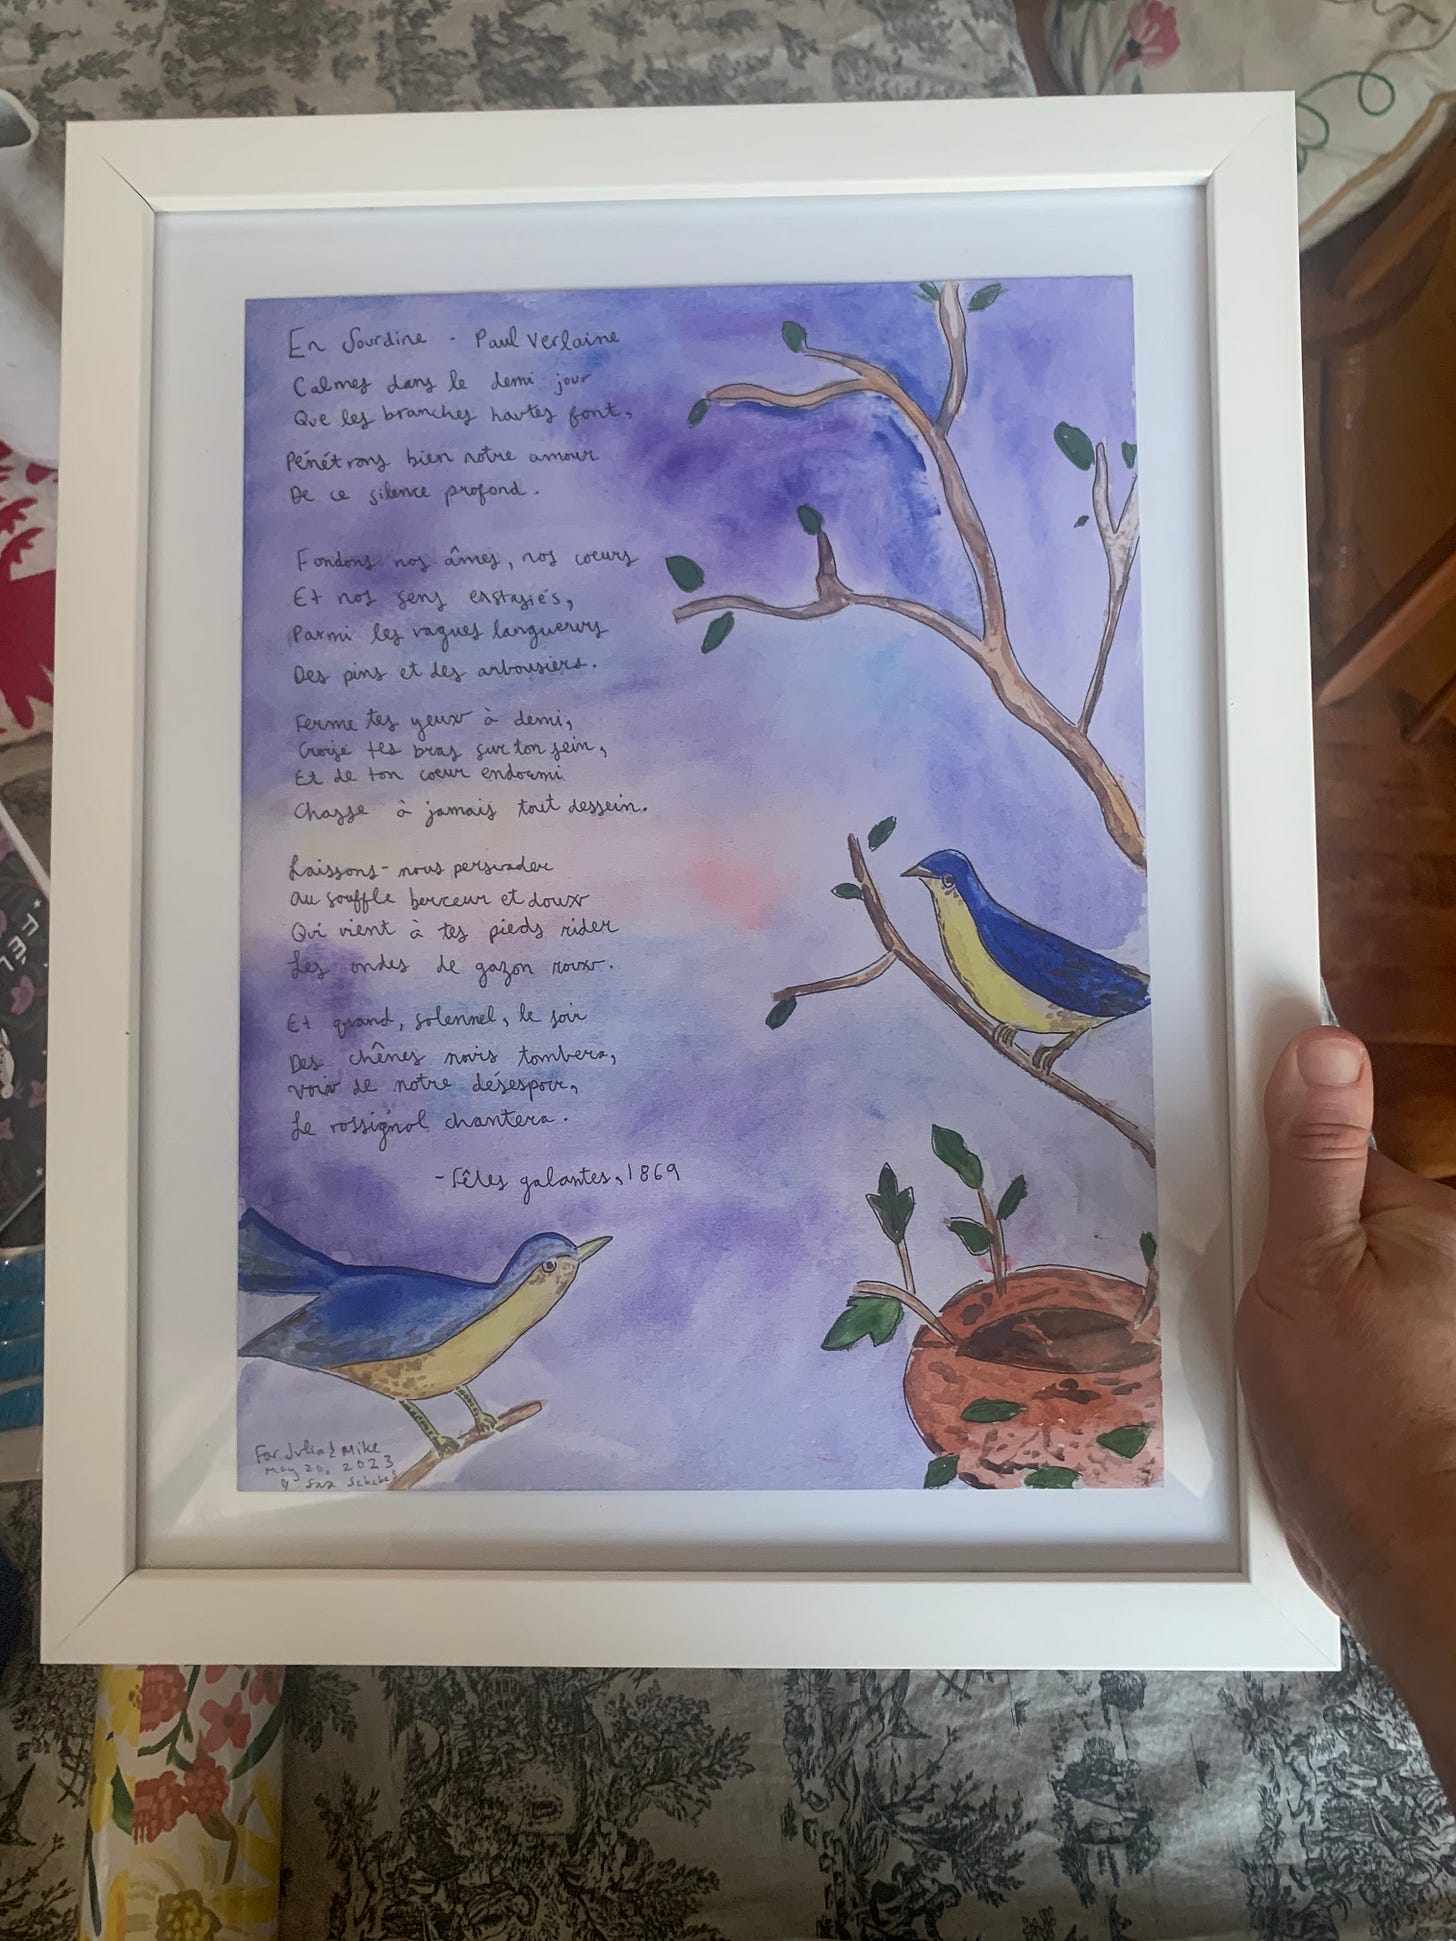 En Sourdine - Paul Verlaine
Calmes dans le demi-jour
Que les branches hautes font,
Pénétrons bien notre amour
De ce silence profond.
Fondons nos âmes, nos coeurs
Et nos sens extasiés,
Parmi les vagues langueurs
Des pins et des arbousiers.
Ferme tes yeux à demi,
Croise tes bras sur ton sein,
Et de ton coeur endormi
Chasse à jamais tout dessein.
Laissons-nous persuader
Au souffle berceur et doux
Qui vient à tes pieds rider
Les ondes de gazon roux.
Et quand, solennel, le soir
Des chênes noirs tombera,
Voix de notre désespoir,
Le rossignol chantera.
- Fêtes galantes, 1869
For Julia & Mike
May 20, 2023
FÉL